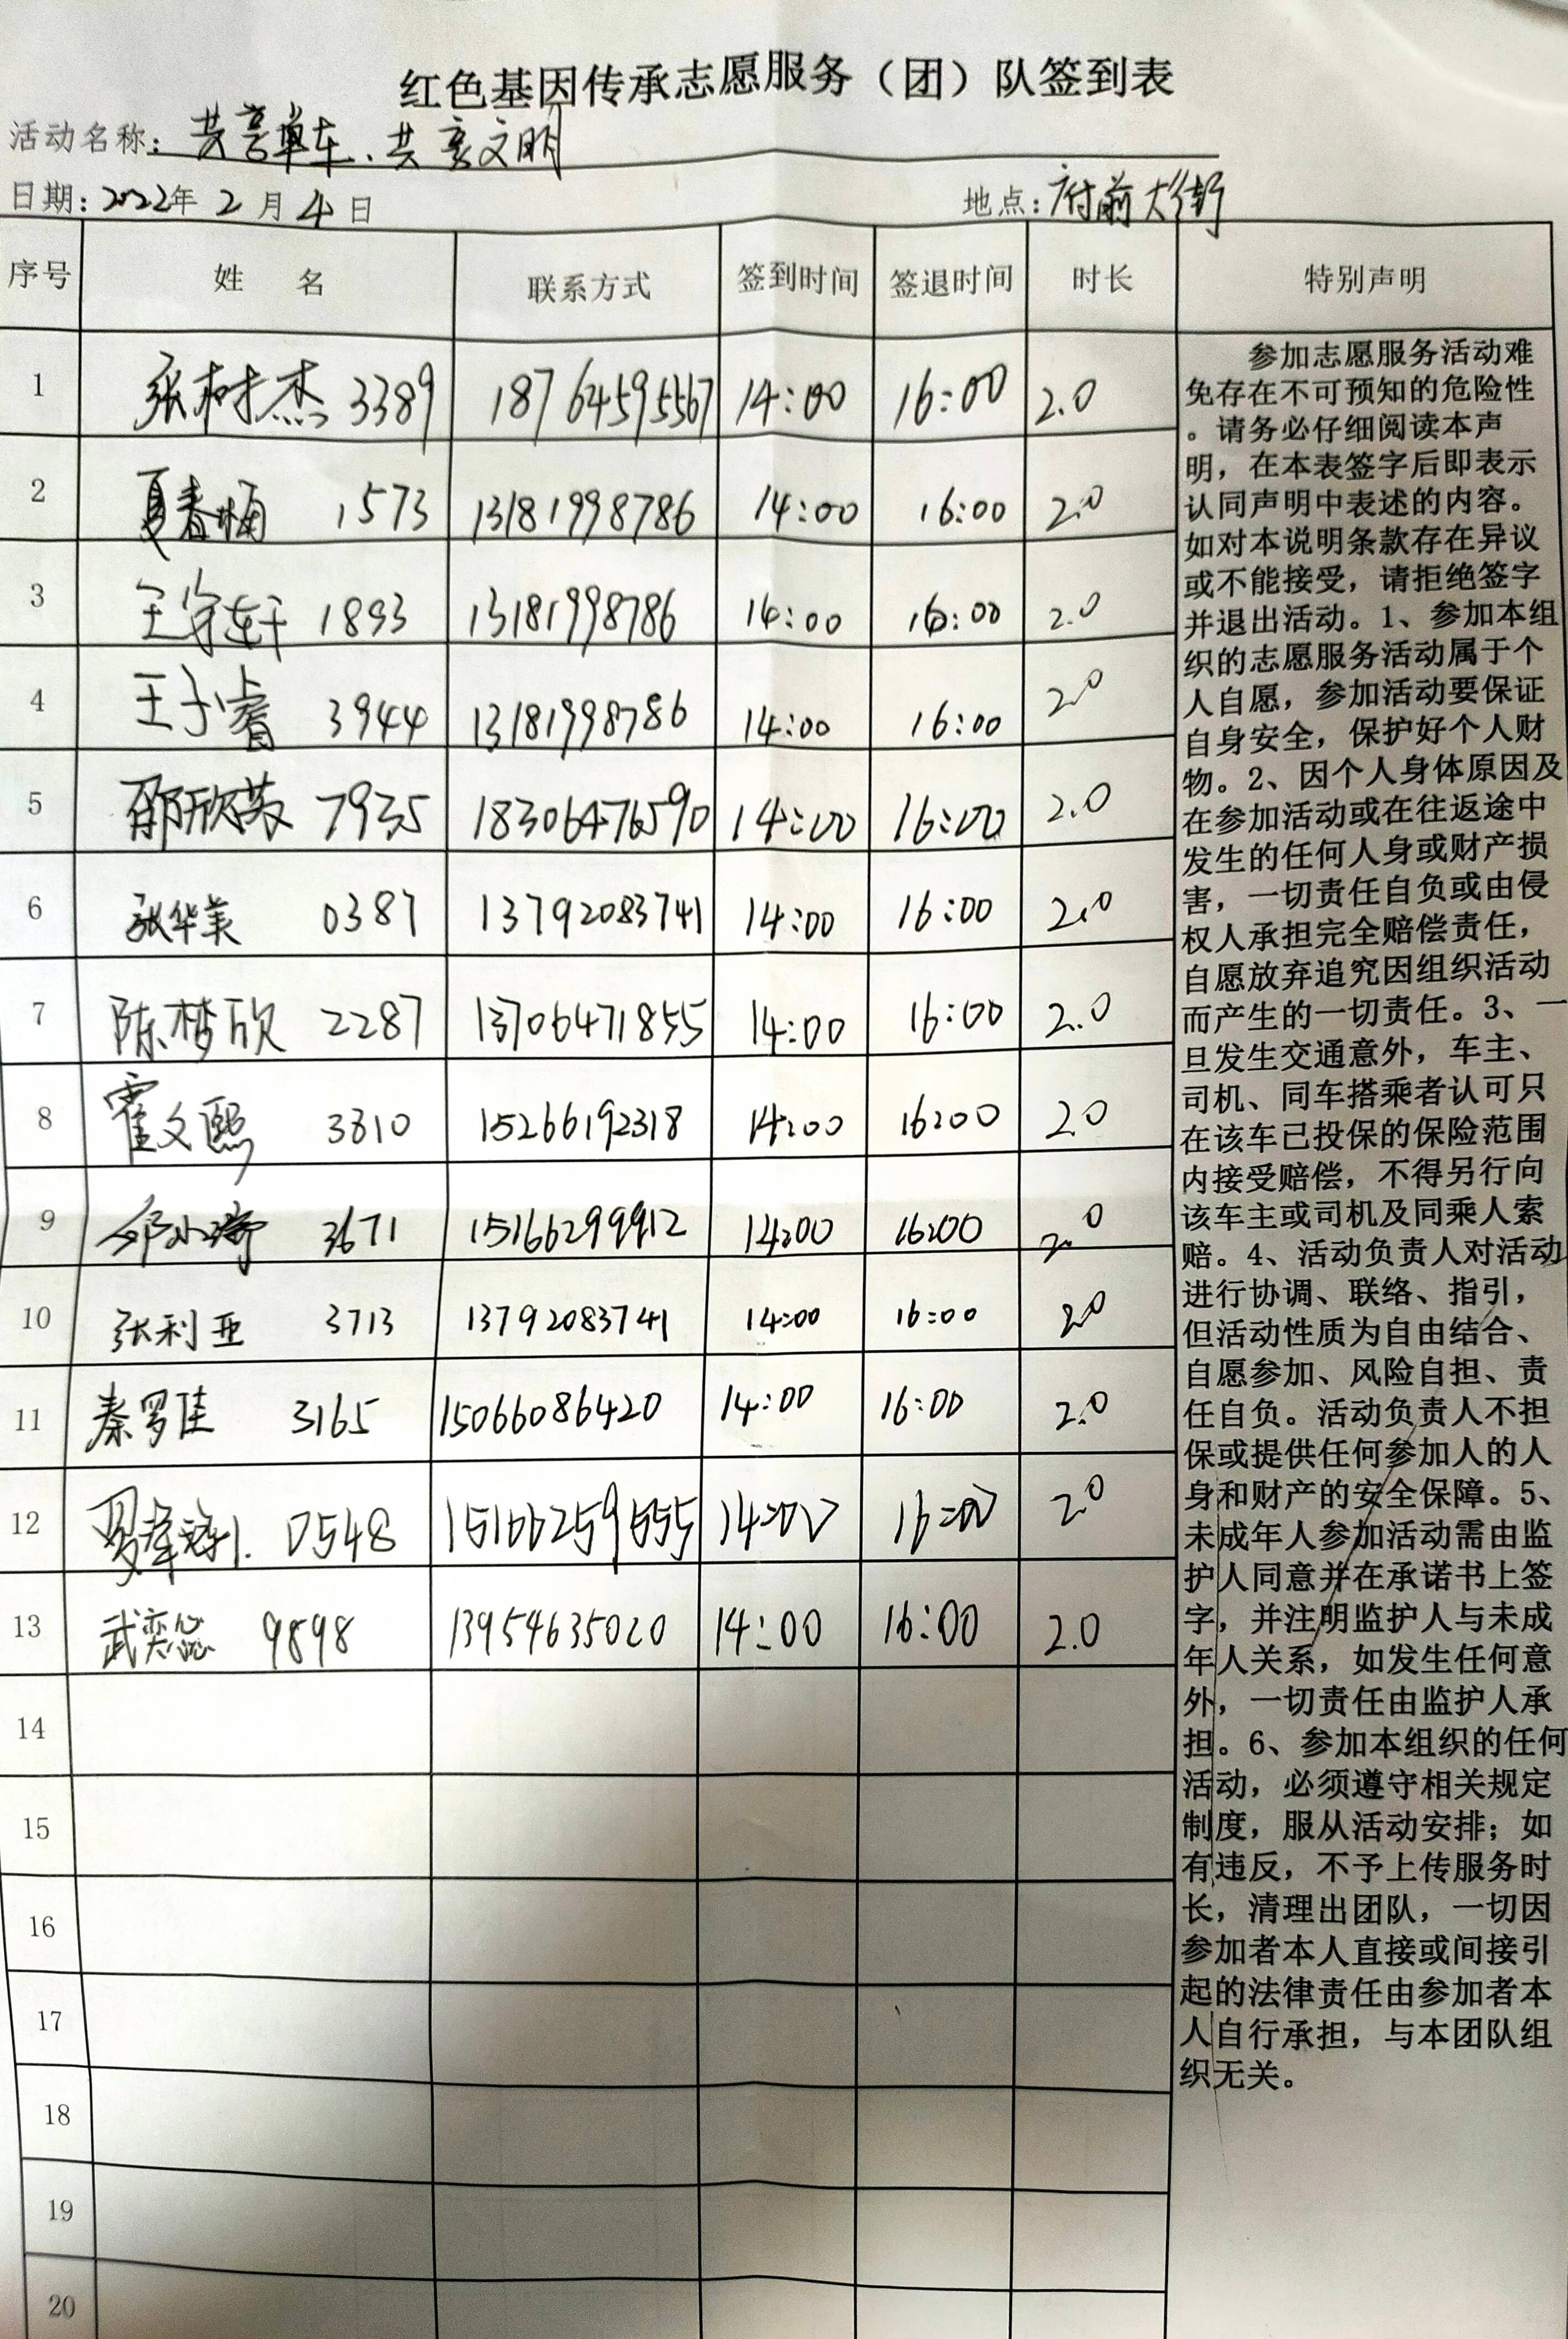 红色基因传承志愿服务（团）队签到表
活动名称：共享单车、共享文明
日期：2022年 2 月 4 日 地点：府前大街
序号 姓 名 联系方式 签到时间 签退时间 时长 特别声明
1 张树杰 3389 18764595567 14:00 16:00 2.0
2 夏春梅 1573 13181998786 14:00 16:00 2.0
3 王 1893 13181998786 14:00 16:00 2.0
4 王子睿 3944 13181998786 14:00 16:00 2.0
5 7935 18306476590 14:00 16:00 2.0
6 张华美 0387 13792083741 14:00 16:00 2.0
7 陈梦欣 2287 13706471855 14:00 16:00 2.0
8 霍文熙 3310 15266192318 14:00 16:00 2.0
9 3671 15166299912 14:00 16:00 2.0
10 张利亚 3713 13792083741 14:00 16:00 2.0
11 秦罗佳 3165 15066086420 14:00 16:00 2.0
12 罗 0548 15166259555 14:00 16:00 2.0
13 武奕 9898 13954635020 14:00 16:00 2.0
14
15
16
17
18
19
20
参加志愿服务活动难
免存在不可预知的危险性
。请务必仔细阅读本声
明，在本表签字后即表示
认同声明中表述的内容。
如对本说明条款存在异议
或不能接受，请拒绝签字
并退出活动。1、参加本组
织的志愿服务活动属于个
人自愿，参加活动要保证
自身安全，保护好个人财
物。2、因个人身体原因及
在参加活动或在往返途中
发生的任何人身或财产损
害，一切责任自负或由侵
权人承担完全赔偿责任，
自愿放弃追究因组织活动
而产生的一切责任。3、一
旦发生交通意外，车主、
司机、同车搭乘者认可只
在该车已投保的保险范围
内接受赔偿，不得另行向
该车主或司机及同乘人索
赔。4、活动负责人对活动
进行协调、联络、指引，
但活动性质为自由结合、
自愿参加、风险自担、责
任自负。活动负责人不担
保或提供任何参加人的人
身和财产的安全保障。5、
未成年人参加活动需由监
护人同意并在承诺书上签
字，并注明监护人与未成
年人关系，如发生任何意
外，一切责任由监护人承
担。6、参加本组织的任何
活动，必须遵守相关规定
制度，服从活动安排；如
有违反，不予上传服务时
长，清理出团队，一切因
参加者本人直接或间接引
起的法律责任由参加者本
人自行承担，与本团队组
织无关。